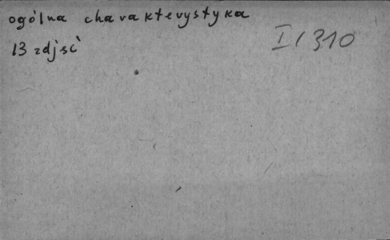 ogólna charakterystyka
I/310
13 zdjęć